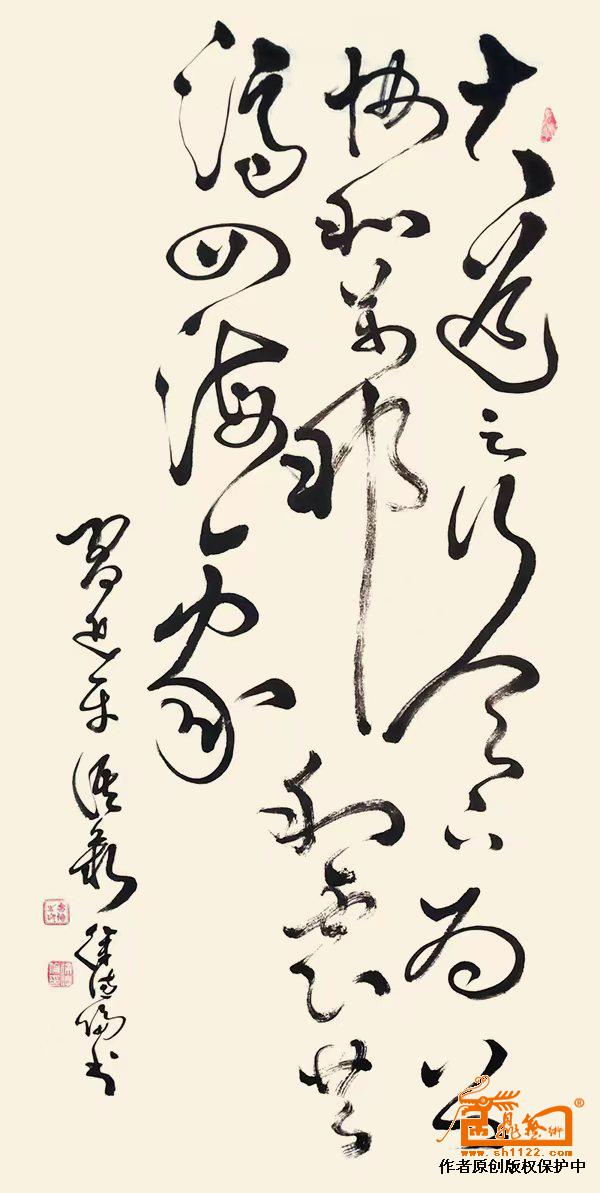 大道之行天下为公
协和万邦和衷共
济四海一家
习近平语录 徐书
www.sh1122.com
作者原创版权保护中